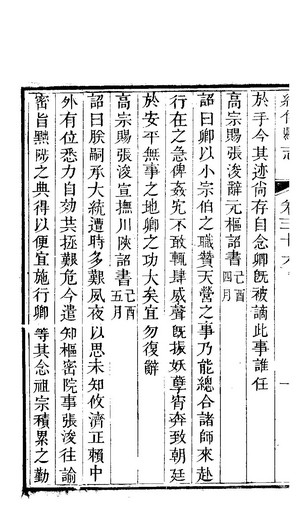 卷三十六
於手今其迹尚存自念卿旣被謫此事誰任
高宗賜張浚辭元樞詔書己酉四月
詔曰卿以小宗伯之職贊天營之事乃能總合諸師來赴
行在之急俾姦宄不敢輒肆威聲旣振妖孽宵奔致朝廷
於安平無事之地卿之功大矣宜勿復辭
高宗賜張浚宣撫川陝詔書己酉五月
詔曰朕嗣承大統遭時多艱夙夜以思未知攸濟正賴中
外有位悉力自効共拯艱危今遣知樞密院事張浚往諭
密旨黜陟之典得以便宜施行卿等其念祖宗積累之勤